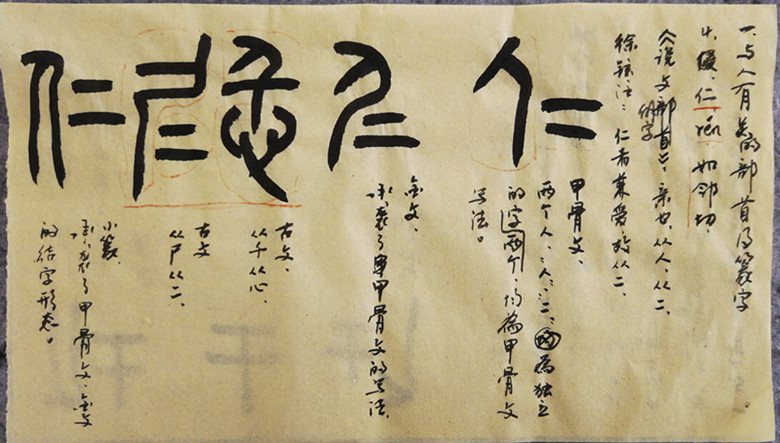 一、与人有关的部首及篆字
如邻切、
说文部首 亲也、从人、从二、
徐铉注：仁者兼爱故从二、
仁
甲骨文、
两个人、二、均为独立
的字两个、均为甲骨文
写法。
仁
金文、
承袭了甲骨文的写法、
古文、
从千从心、
古文
从尸从二、
仁
小篆、
承袭了甲骨文、金文
的结字形态。